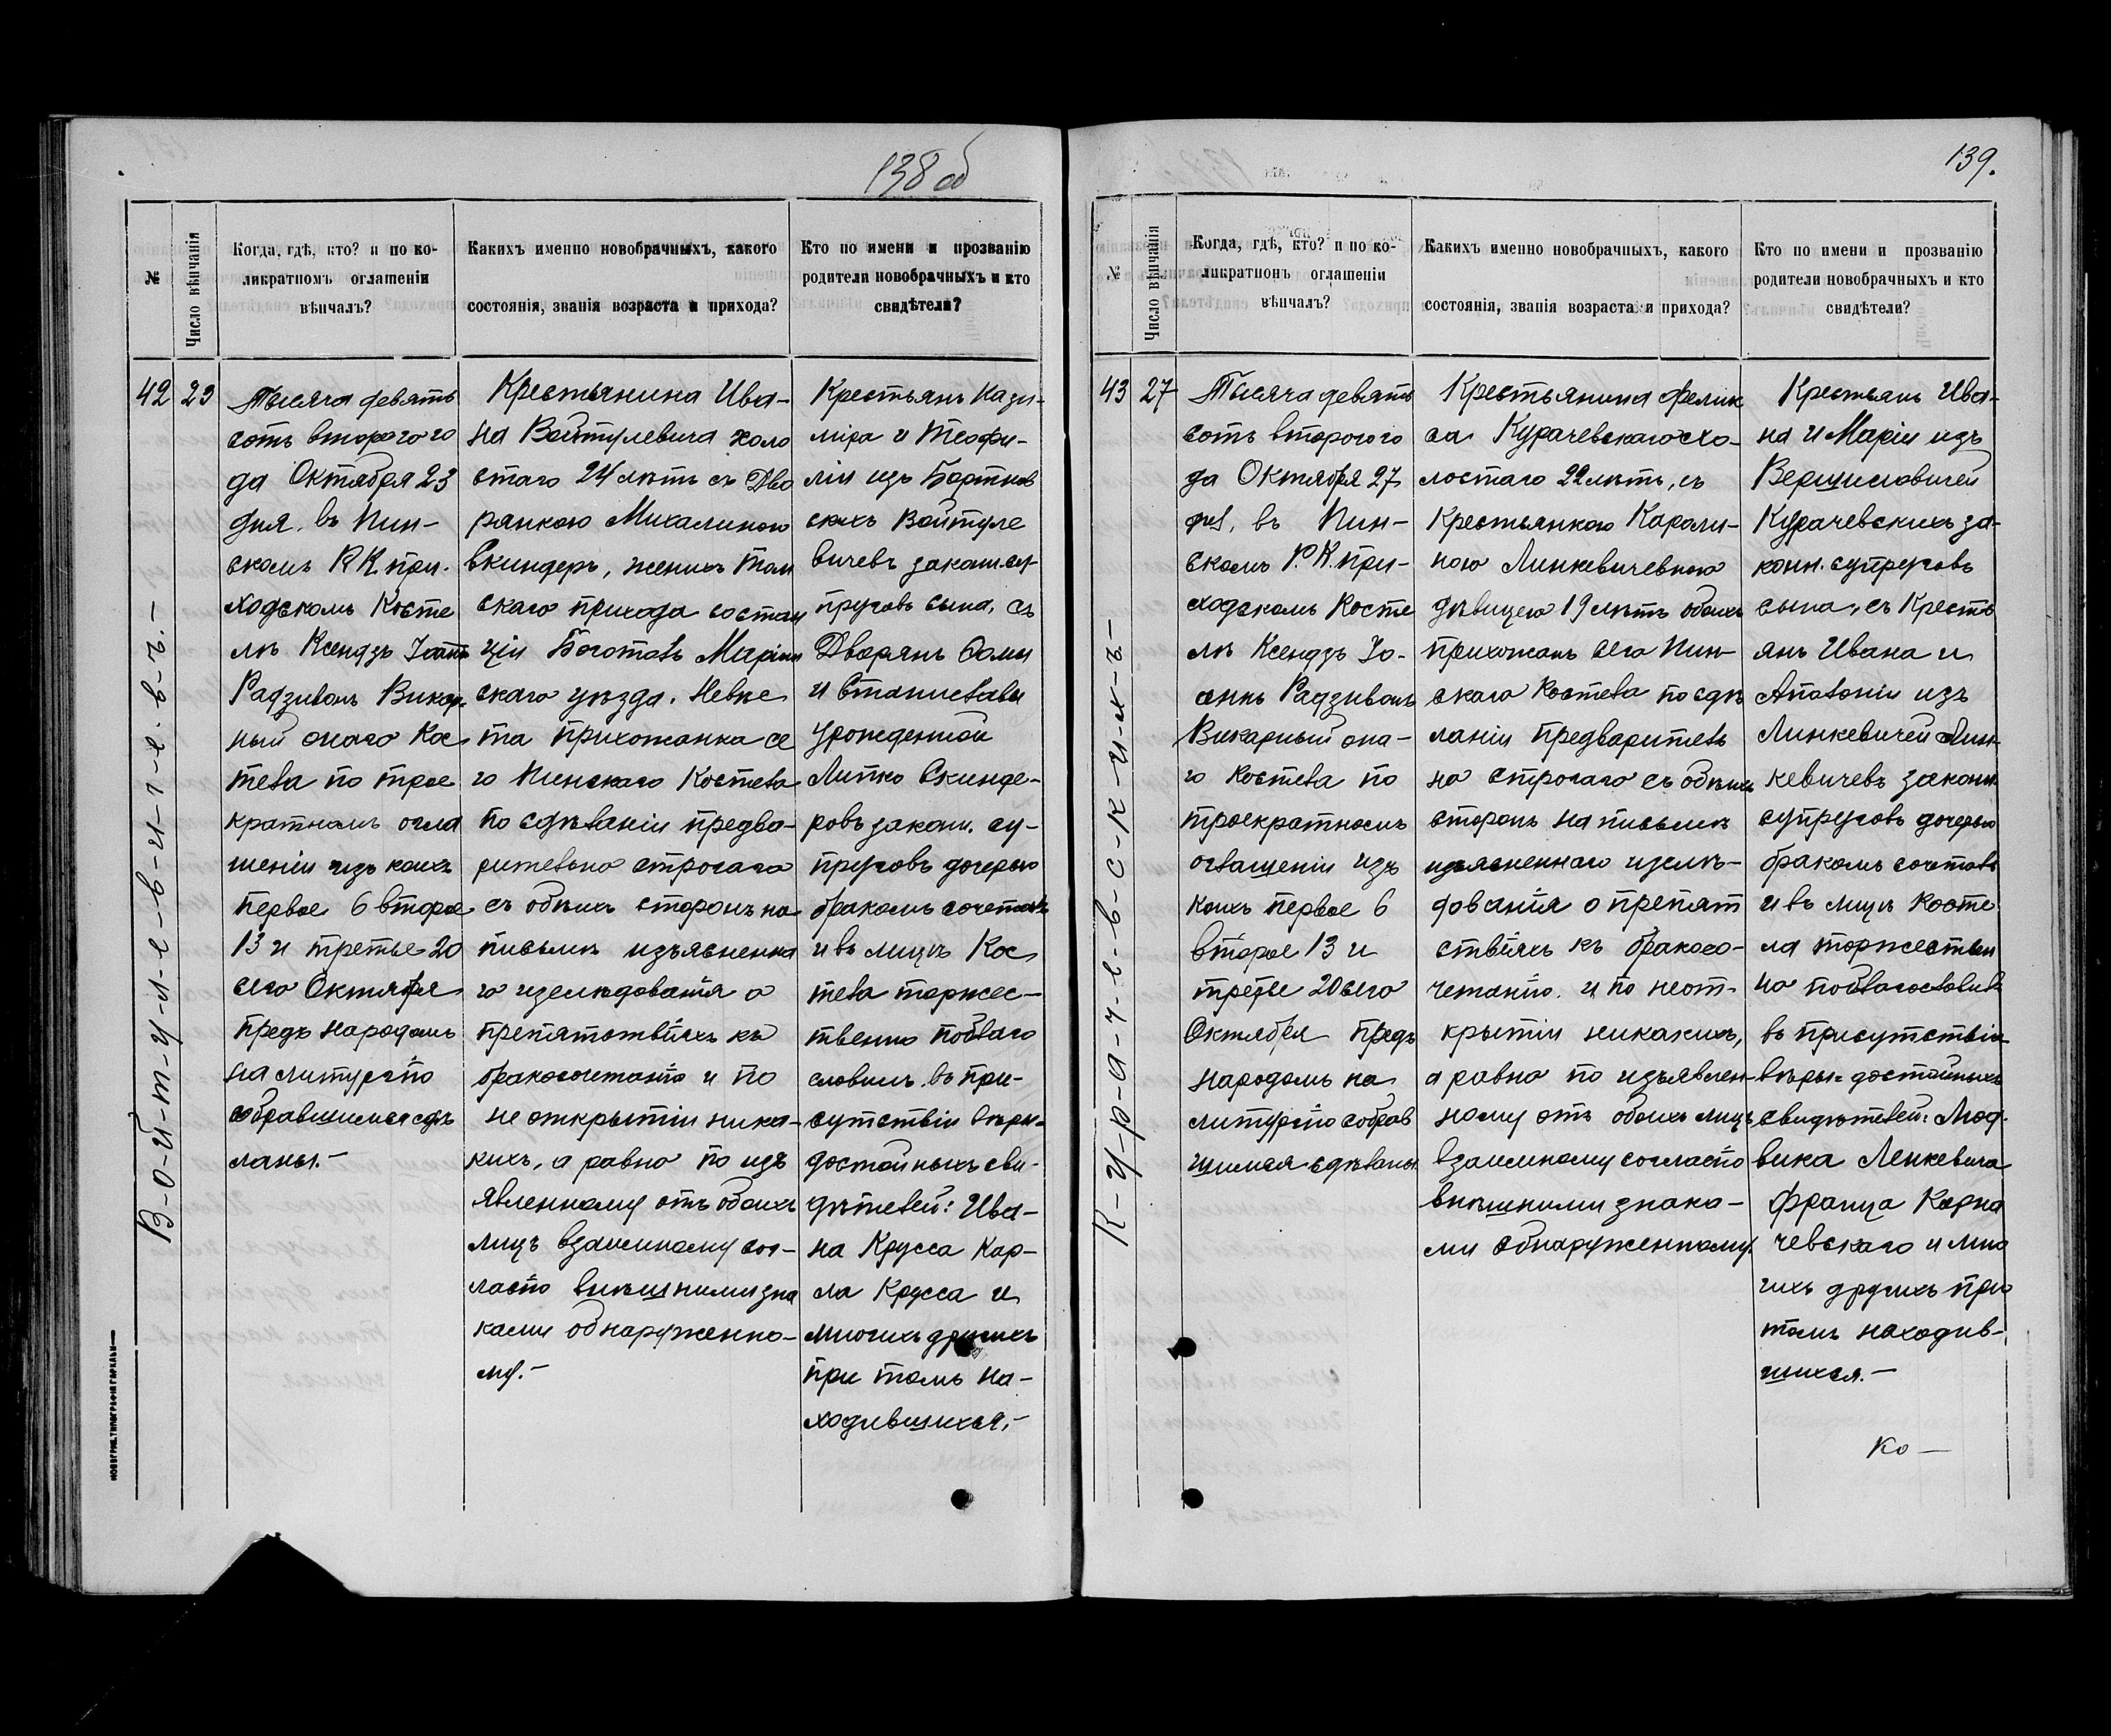 138 об
№
Число вѣнчанія
Когда, гдѣ, кто? и по ко-
ликратномъ оглашеніи
вѣнчалъ?
Какихъ именно новобрачныхъ, какого
состоянія, званія возраста и прихода?
Кто по имени и прозванію
родители новобрачныхъ и кто
свидѣтели?
42
23
В-о-й-т-у-л-е-в-и-ч-е-в-ъ.-
Тысяча девять
сотъ второго го
да Октября 23
дня, въ Пин-
скомъ Р.К. при-
ходскомъ Косте
лѣ Ксендзъ Іоаннъ
Радзивонъ Викар-
ный онаго Кос
тела по трое
кратномъ огла
шеніи изъ коихъ
первое 6 второе
13 и третье 20
сего Октября
предъ народомъ
на литургію
собравшимся сдѣ
ланы.-
Крестьянина Ива-
на Войтулевича холо
стаго 24 лѣтъ съ Дво
рянкою Михалиною
Скиндеръ, женихъ
скаго прихода
скаго уѣзда. Невѣс
та прихожанка се
го Пинскаго Костела
по сдѣланіи предва-
рительно строгаго
съ обѣихъ сторонъ на
письмѣ изъясненна
го изслѣдованія о
препятствіяхъ къ
бракосочетанію и по
не открытіи ника-
кихъ, а равно по изъ
явленному отъ обоихъ
лицъ взаимному сог-
ласію внѣшними зна
ками обнаруженно-
му.-
Крестьянъ Кази-
міра и Теофи-
ліи изъ Бортнов
скихъ Войтуле
вичевъ законн. су-
пруговъ сына, съ
Дворянъ Фомы
и Станиславы
урожденной
Липко Скинде-
ровъ законн. су-
пруговъ дочерью
бракомъ сочеталъ
и въ лицѣ Кос
тела торжес-
твенно поблаго
словилъ въ при-
сутствіи вѣры-
достойныхъ сви-
дѣтелей: Ива-
на Крусса Кар-
ла Крусса и
многихъ другихъ
при томъ на-
ходившихся.-
139.
№
Число вѣнчанія
Когда, гдѣ, кто? и по ко-
ликратномъ оглашеніи
вѣнчалъ?
Какихъ именно новобрачныхъ, какого
состоянія, званія возраста и прихода?
Кто по имени и прозванію
родители новобрачныхъ и кто
свидѣтели?
43
27
К-у-р-а-ч-е-в-с-к-и-х-ъ-
Тысяча девять
сотъ второго го
да Октября 27
дня, въ Пин-
скомъ Р.К. при-
ходскомъ Косте
лѣ Ксендзъ Іо-
аннъ Радзивонъ
Викарный она-
го Костела по
троекратномъ
оглашеніи изъ
коихъ первое 6
второе 13 и
третье 20 сего
Октября предъ
народомъ на
литургію собрав
шимся сдѣланы.
Крестьянина Феликс
са Курачевскаго хо-
лостаго 22 лѣтъ, съ
Крестьянкою Кароли-
ною Линкевичевною
дѣвицею 19 лѣтъ обоихъ
прихожанъ сего Пин-
скаго Костела по сдѣ
ланіи предваритель
но строгаго съ обѣихъ
сторонъ на письмѣ
изъясненнаго изслѣ-
дованія о препят
ствіяхъ къ бракосо-
четанію, и по неот-
крытіи никакихъ,
а равно по изъявлен-
ному отъ обоихъ лицъ
взаимному согласію
внѣшними знака-
ми обнаруженному.
Крестьянъ Ива-
на и Маріи изъ
Курачевскихъ за-
конн. супруговъ
сына, съ Кресть
янъ Ивана и
Анатоліи изъ
Линкевичей Лин-
кевичевъ законн.
супруговъ дочерью
бракомъ сочеталъ
и въ лицѣ Косте-
ла торжествен
но поблагословилъ
въ присутствіи
вѣры-достойныхъ
свидѣтелей: Люд-
вика Ленкевича
Франца
чевскаго и мно
гихъ другихъ при
томъ находив-
шихся.-
Ко-